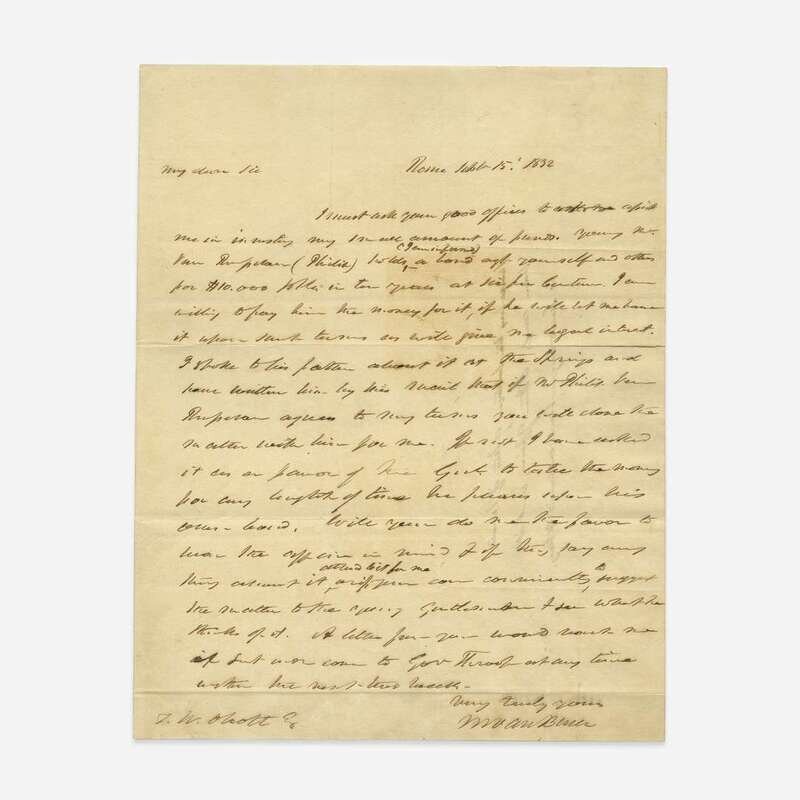 My dear Sir
Rome Sept 15. 1832
I must ask your good offices to assist
me in investing my small amount of funds. Young Mr.
(I am informed)
Van Renselaer (Philip) holds a bond agt yourself and others
for $10.000 in ten years at six per Centum. I am
willing to pay him the money for it, if he will let me have
it upon such terms as will give me legal interest.
I spoke to his father about it at the Springs and
have written him by this mail that if Mr Philip Van
Renselaer agrees to my terms you will close the
matter with him for me. If not I have asked
it as a favor of the Genl. to take the money
for any length of time he pleases upon his
own bond. Will you do me the favor to
bear the affair in mind & if they say any
attend to it for me
thing about it or if you can conveniently to suggest
the matter to the young Gentleman & see what he
thinks of it. A letter from you would reach me
if sent under cover to Gov Throop at any time
within the next two weeks.
Very truly yours
M Van Buren
T. W. Olcott Eq